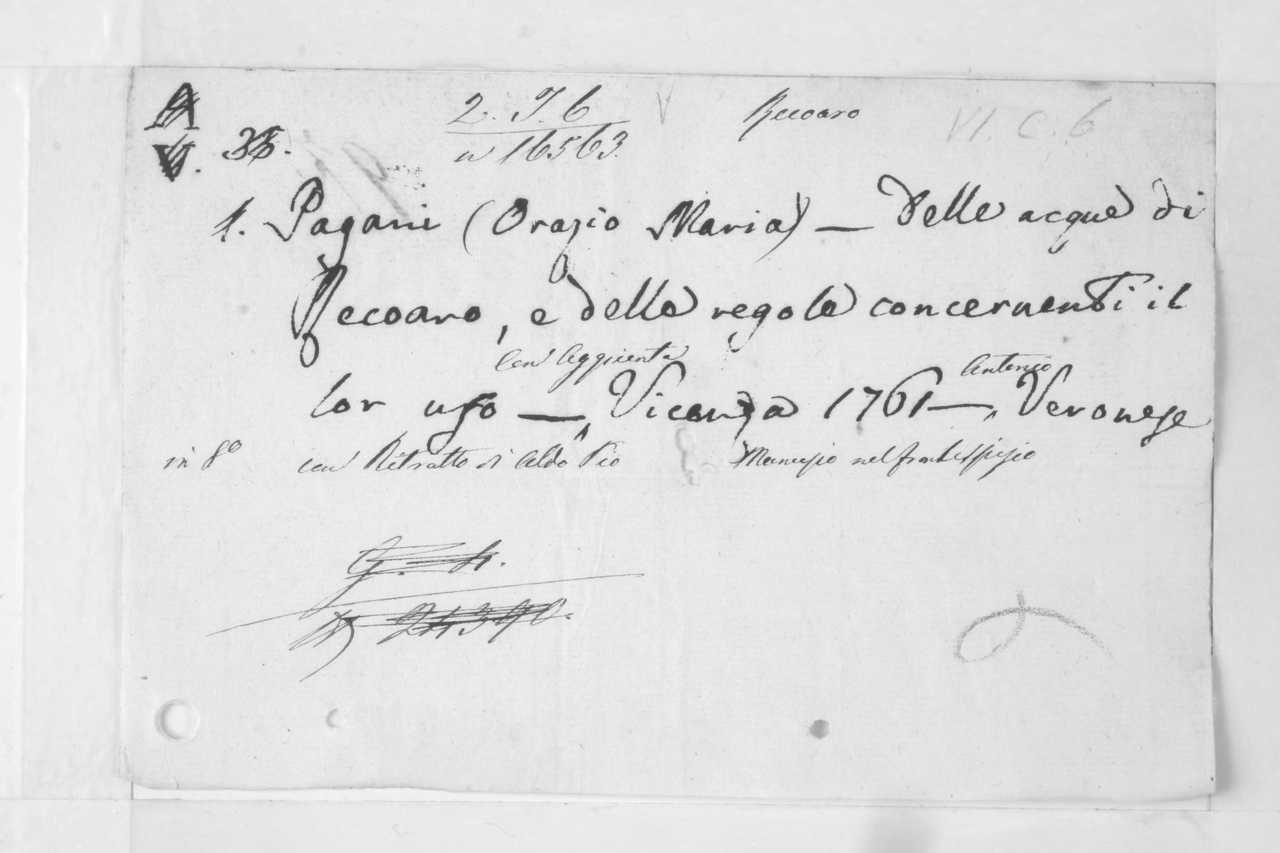 2. I. 6 Recoaro VI. C. 6
V. 35. a 16563.
1. Pagani (Orazio Maria) — Delle acque di
Recoaro, e delle regole concernenti il
con Aggiunta Antonio
lor uso — Vicenza 1761 — Veronese
in 8° con Ritratto di Aldo Pio Manuzio nel frontespizio
G. 4.
24390.